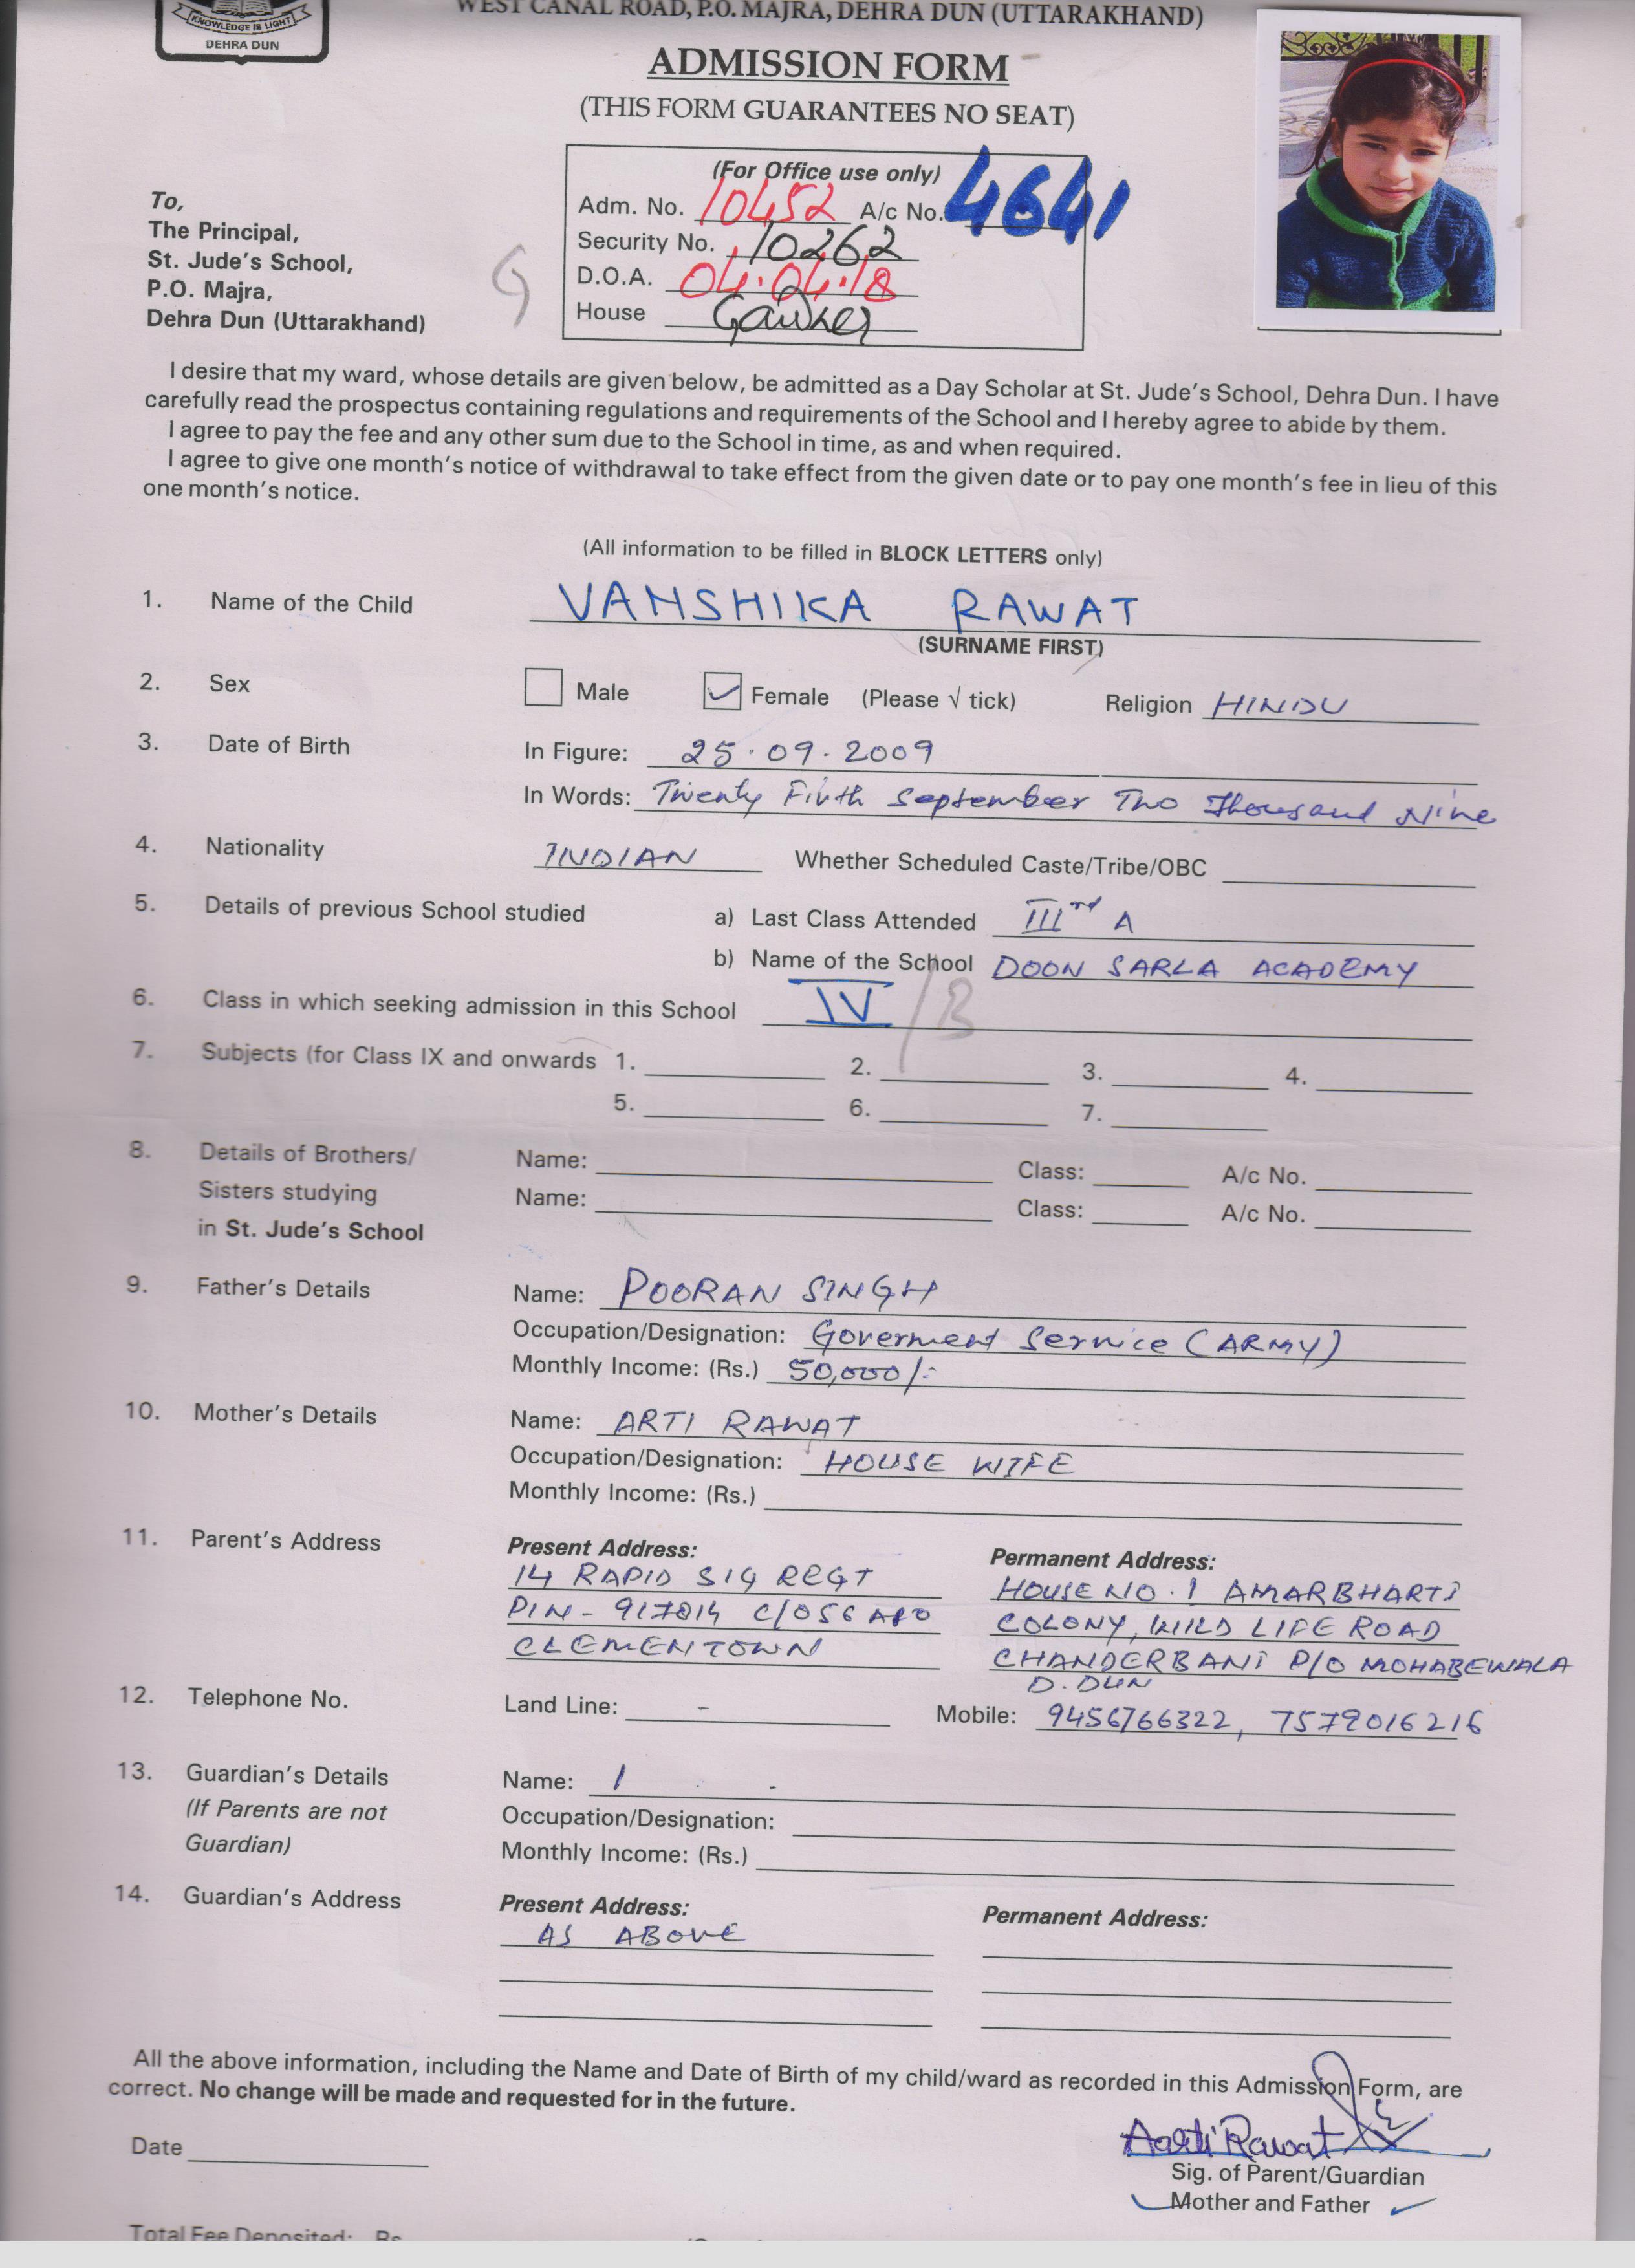 KNOWLEDGE IS LIGHT
DEHRA DUN
WEST CANAL ROAD, P.O. MAJRA, DEHRA DUN (UTTARAKHAND)
ADMISSION FORM
(THIS FORM GUARANTEES NO SEAT)
(For Office use only)
Adm. No. 10452 A/c No. 4641
Security No. 10262
D.O.A. 04.04.18
House
To,
The Principal,
St. Jude's School,
P.O. Majra,
Dehra Dun (Uttarakhand)
G
I desire that my ward, whose details are given below, be admitted as a Day Scholar at St. Jude's School, Dehra Dun. I have
carefully read the prospectus containing regulations and requirements of the School and I hereby agree to abide by them.
I agree to pay the fee and any other sum due to the School in time, as and when required.
I agree to give one month's notice of withdrawal to take effect from the given date or to pay one month's fee in lieu of this
one month's notice.
(All information to be filled in BLOCK LETTERS only)
1. Name of the Child VANSHIKA RAWAT
(SURNAME FIRST)
2. Sex Male Female (Please √ tick) Religion HINDU
3. Date of Birth In Figure: 25.09.2009
In Words: Twenty Fivth September Two Thousand Nine
4. Nationality INDIAN Whether Scheduled Caste/Tribe/OBC
5. Details of previous School studied a) Last Class Attended IIIrd A
b) Name of the School DOON SARLA ACADEMY
6. Class in which seeking admission in this School IV/B
7. Subjects (for Class IX and onwards 1. 2. 3. 4.
5. 6. 7.
8. Details of Brothers/ Name: Class: A/c No.
Sisters studying Name: Class: A/c No.
in St. Jude's School
9. Father's Details Name: POORAN SINGH
Occupation/Designation: Goverment Service (ARMY)
Monthly Income: (Rs.) 50,000/-
10. Mother's Details Name: ARTI RAWAT
Occupation/Designation: HOUSE WIFE
Monthly Income: (Rs.)
11. Parent's Address
Present Address:
14 RAPID SIG REGT
PIN - 917014 C/O 56 APO
CLEMENTOWN
Permanent Address:
HOUSE NO. 1 AMARBHARTI
COLONY, WILD LIFE ROAD
CHANDERBANI P/O MOHABEWALA
D. DUN
12. Telephone No. Land Line: - Mobile: 9456766322, 7579016216
13. Guardian's Details Name: /
(If Parents are not Occupation/Designation:
Guardian) Monthly Income: (Rs.)
14. Guardian's Address
Present Address:
AS ABOVE
Permanent Address:
All the above information, including the Name and Date of Birth of my child/ward as recorded in this Admission Form, are
correct. No change will be made and requested for in the future.
Date
Aarti Rawat
Sig. of Parent/Guardian
Mother and Father
Total Fee Deposited: Rs.